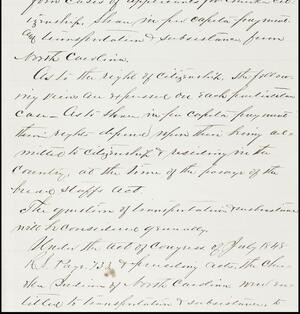 form cases of applicants for
izenship, share in per capita payment
and transportation & subsistence from
North Carolina.
As to the right of citizenship, the follow
ing views are expressed on each particular
case - As to share in per capita payment
their rights depend upon their being ad
mitted to citizenship & residing in the
Country, at the time of the passage of the
Act
The question of transportation & subsistence
will be considered generally.
Under the Act of Congress of July 1848
& preceding acts, the Che
rokee Indians of North Carolina were en
titled to transportation & subsistence to